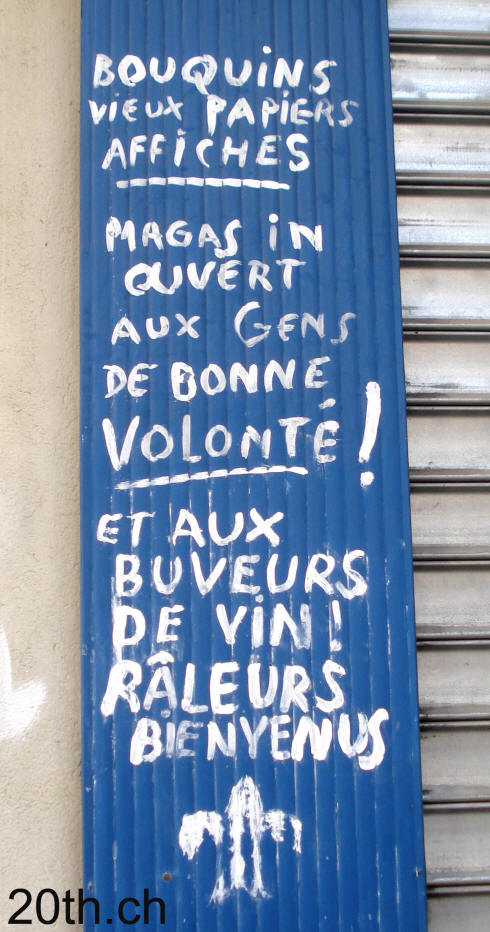 BOUQUINS
VIEUX PAPIERS
AFFICHES
MAGASIN
OUVERT
AUX GENS
DE BONNE
VOLONTÉ!
ET AUX
BUVEURS
DE VIN!
RÂLEURS
BIENVENUS
20th.ch